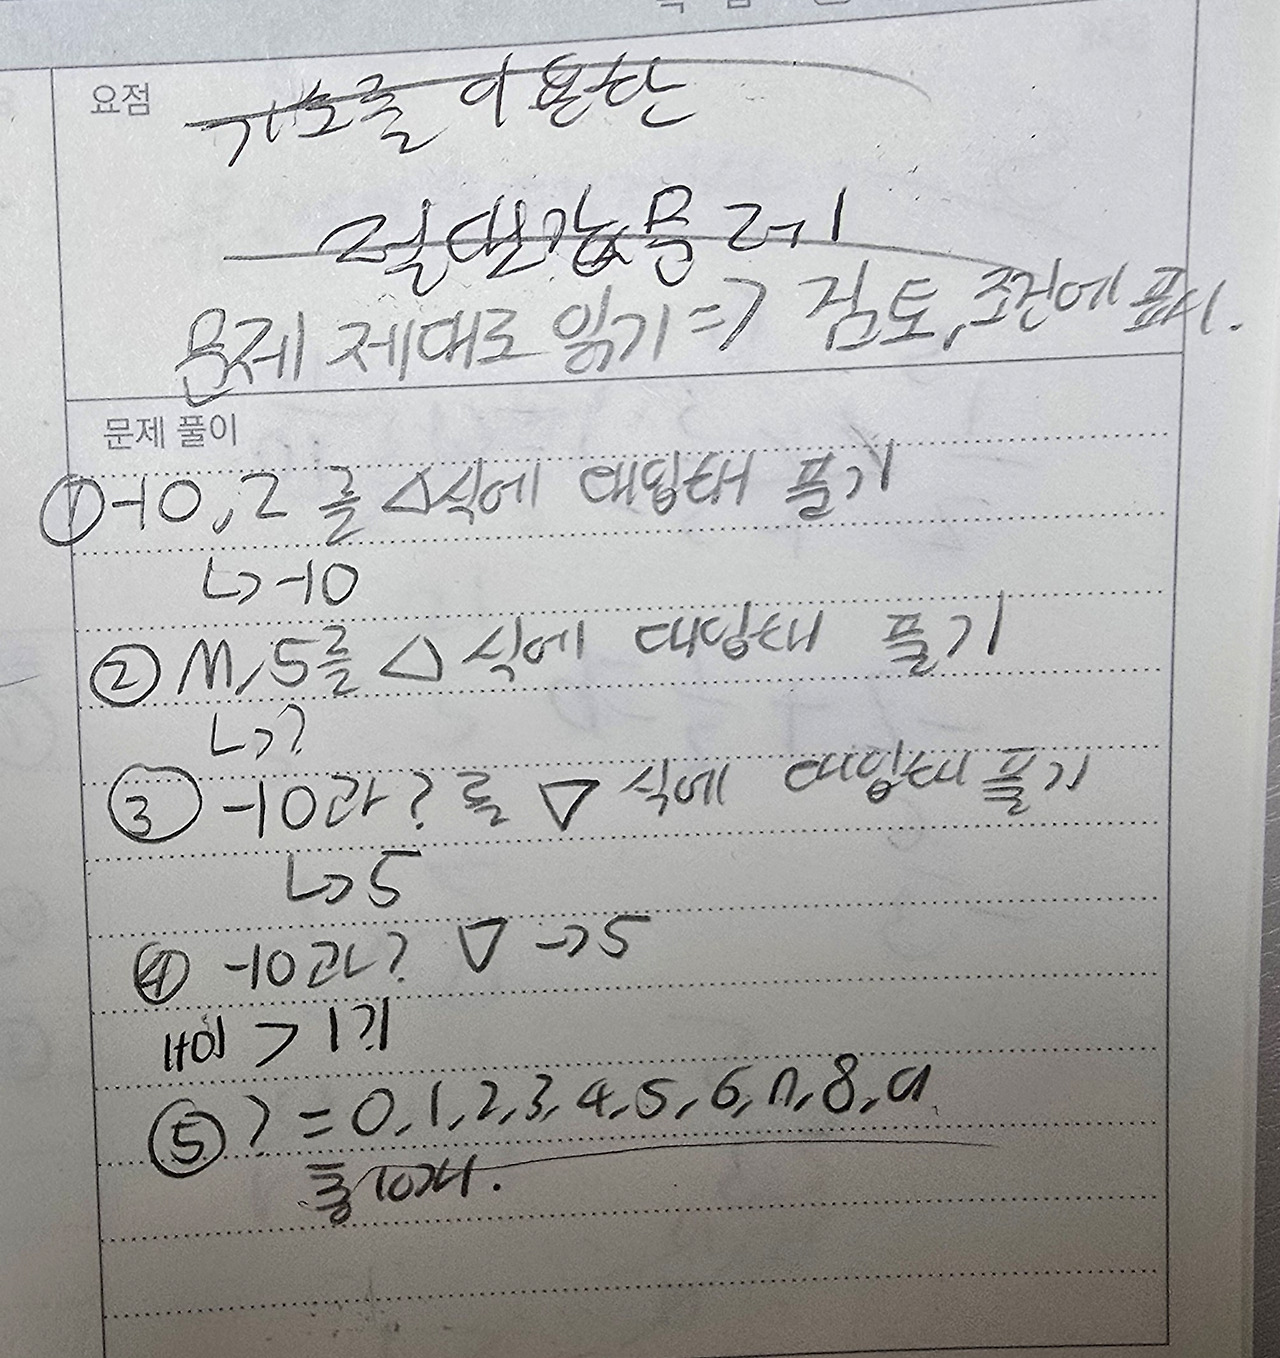 요점
기호를 이용한
절대값 문제
문제 제대로 읽기 => 검토, 조건에 표시.
문제 풀이
① -10, 2 를 △식에 대입해 풀기
↳ -10
② M, 5를 △ 식에 대입해 풀기
↳ ?
③ -10과 ? 를 ▽ 식에 대입해 풀기
↳ 5
④ -10과 ? ▽ → 5
|-10| > |?|
⑤ ? = 0, 1, 2, 3, 4, 5, 6, 7, 8, 9
총 10개.